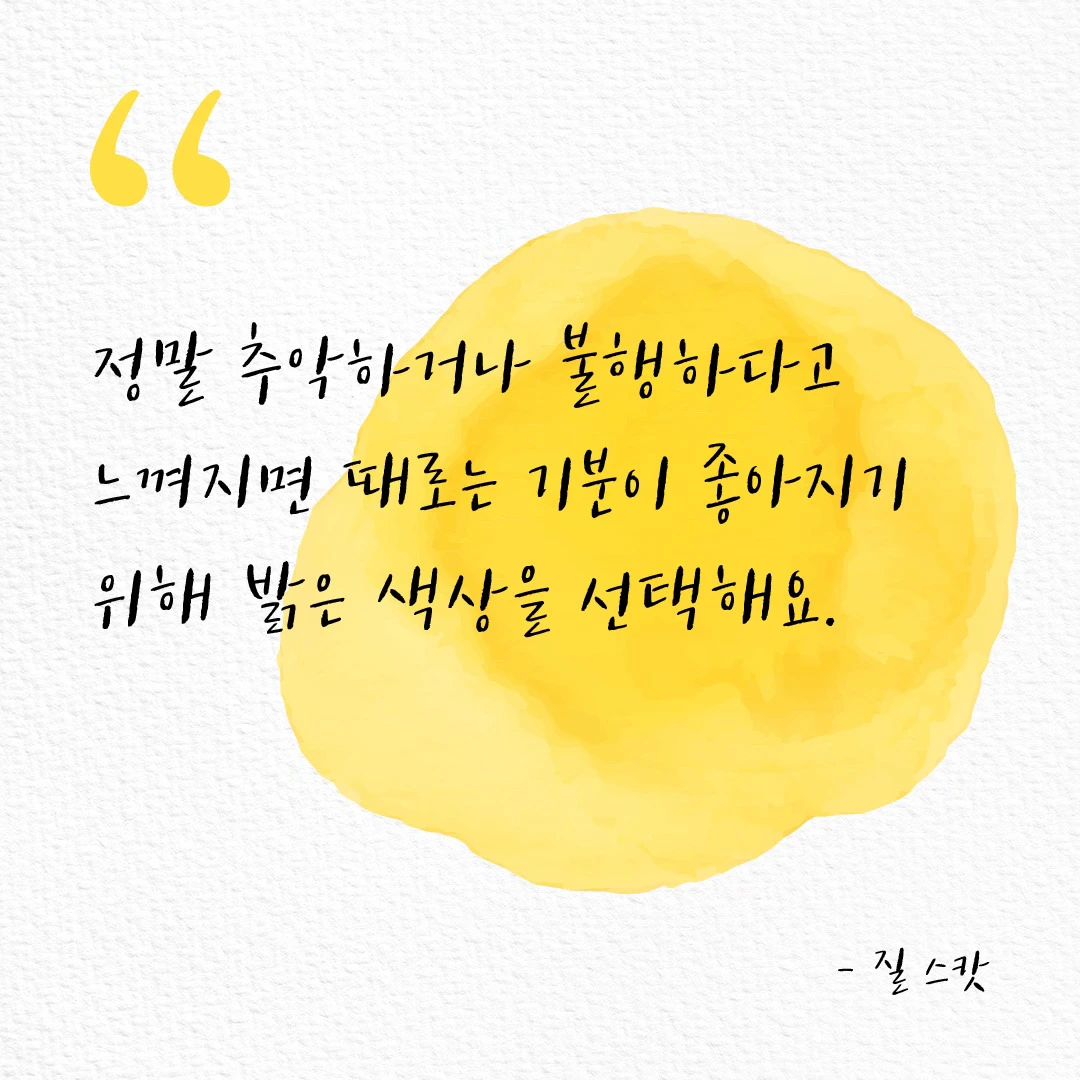 “
정말 추악하거나 불행하다고
느껴지면 때로는 기분이 좋아지기
위해 밝은 색상을 선택해요.
- 질 스캇